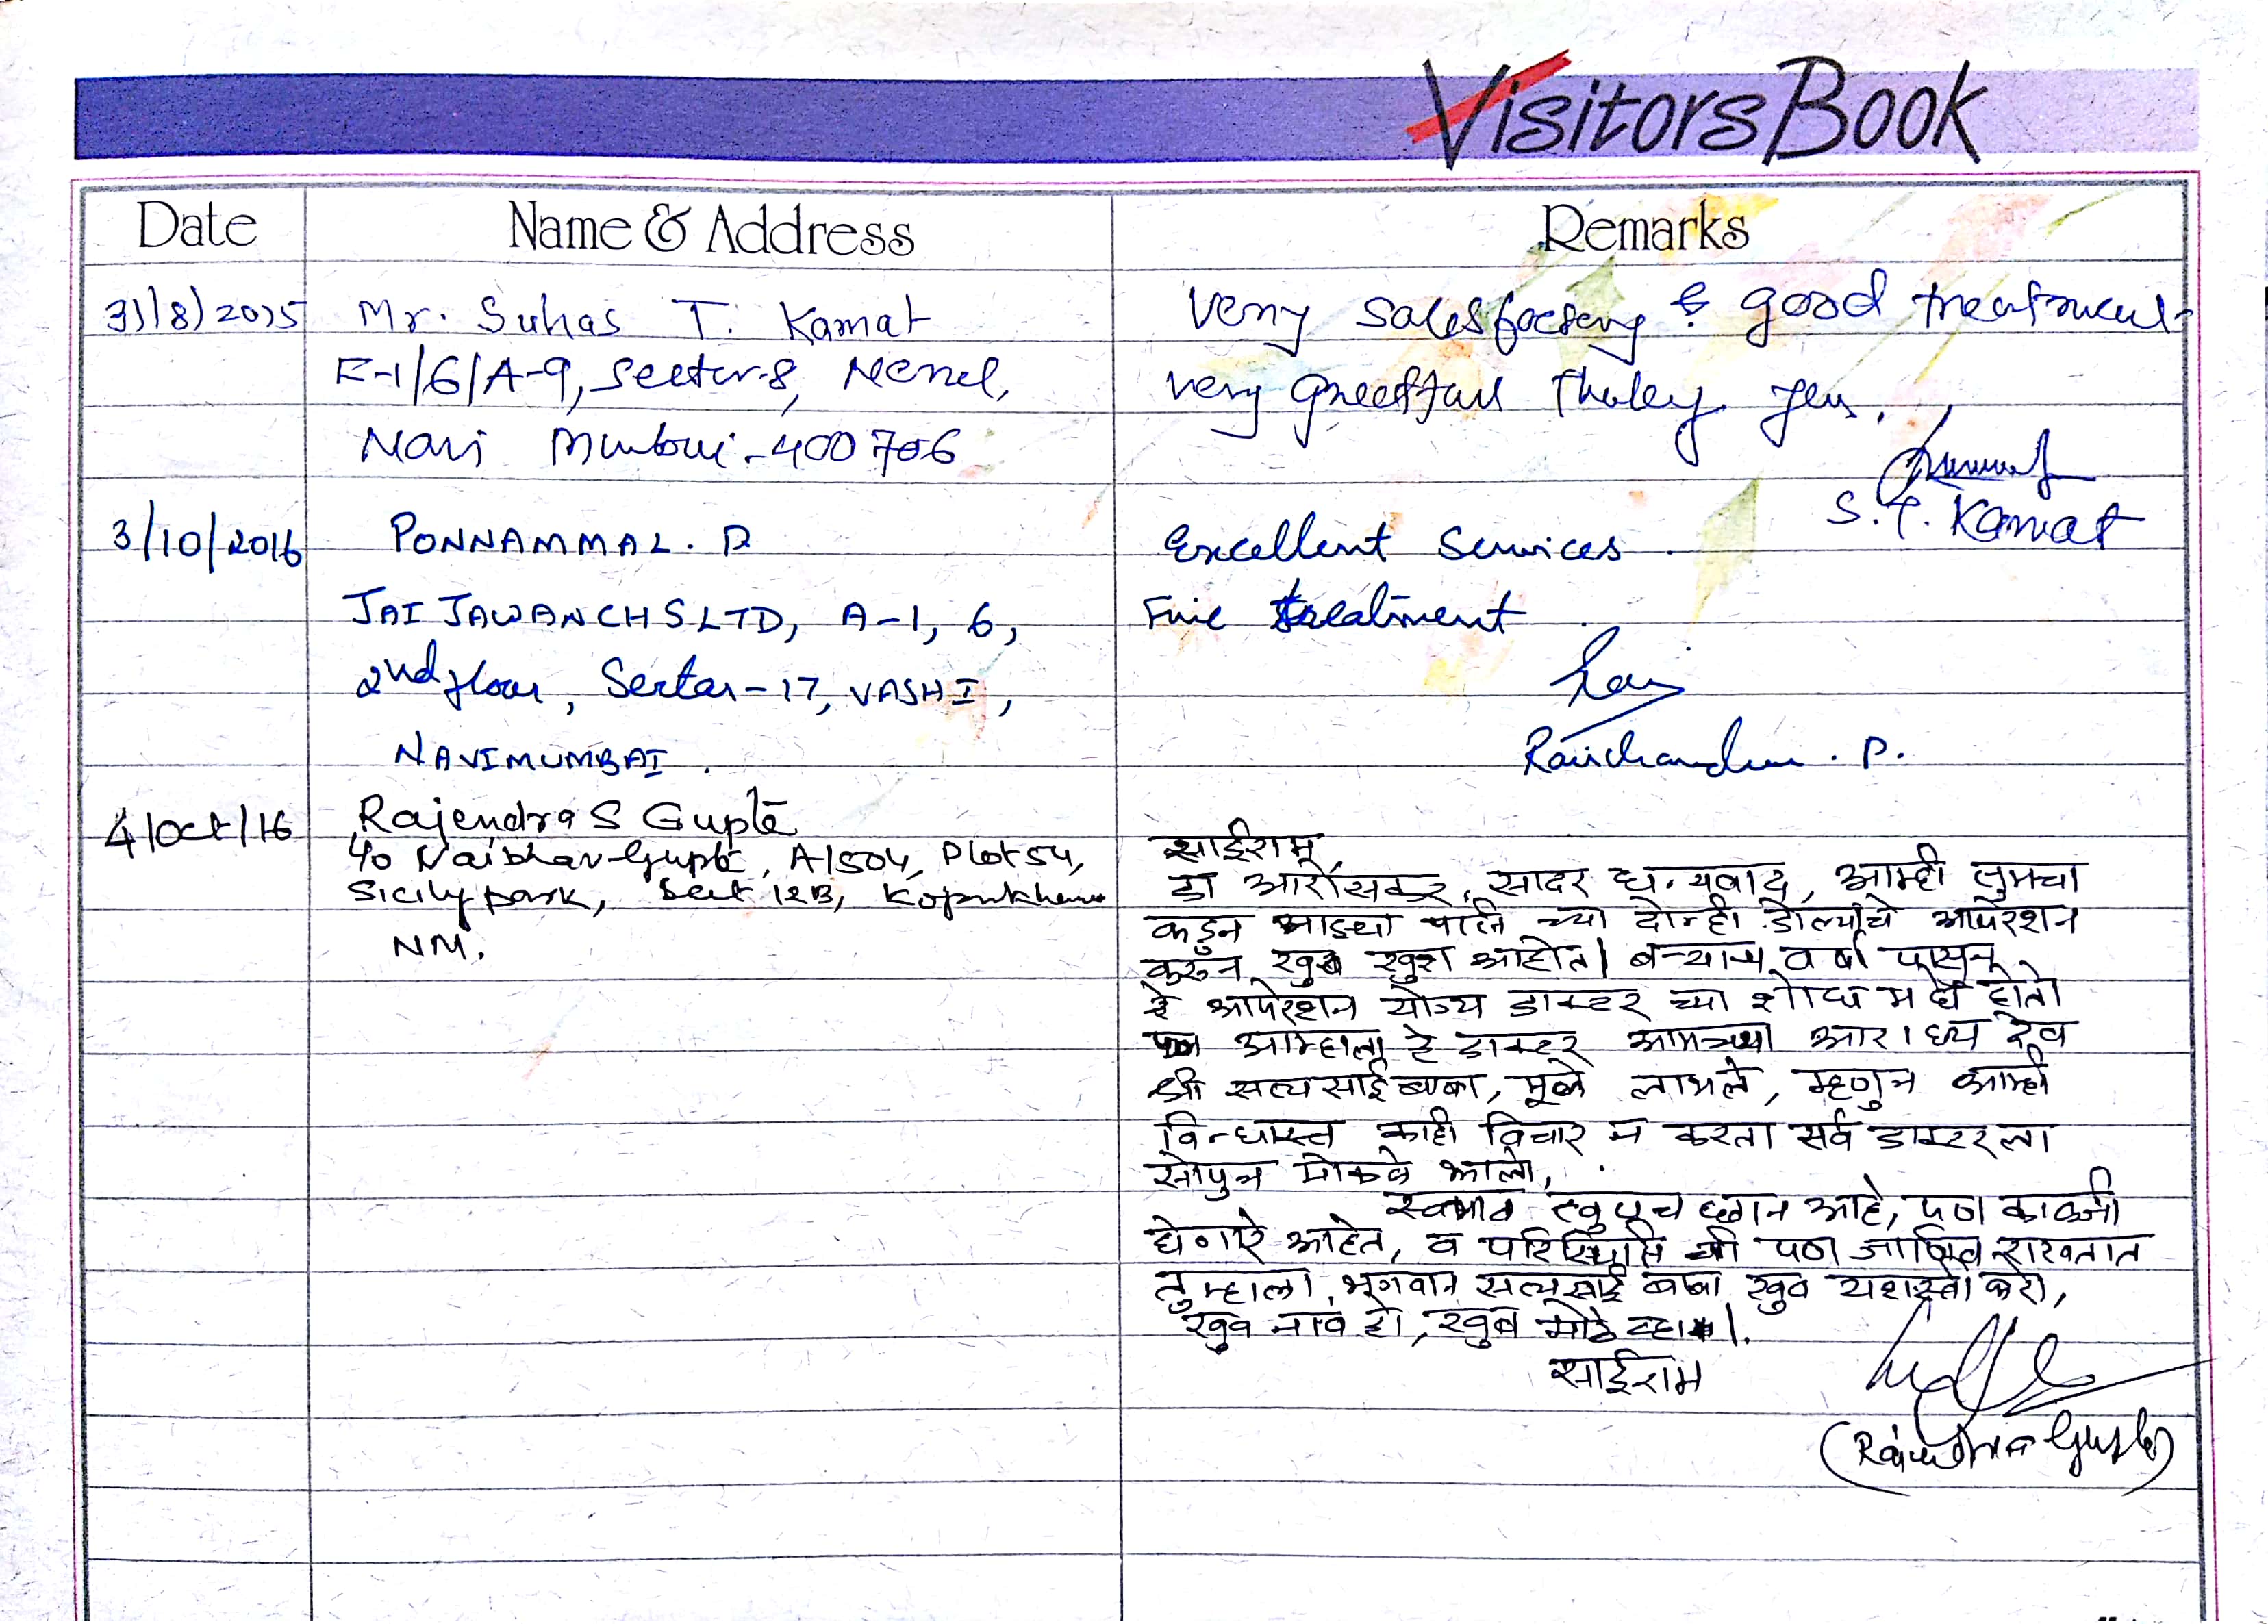 Visitors Book
Date Name & Address Remarks
31/8/2015 Mr. Suhas T. Kamat very & good treatment
E-1/6/A-9, Sector-8, Nerul, very
Navi Mumbai-400706
S. T. Kamat
3/10/2016 PONNAMMAL. P Excellent Services.
JAI JAWAN CHS LTD, A-1, 6, Fine treatment.
2nd floor, Sector-17, VASHI,
NAVI MUMBAI. Ravichandran. P.
4/Oct/16 Rajendra S Gupte
c/o Vaibhav Gupte, A/504, Plot 54,
Sicily park, Sect 12B, Koparkhane
NM.
साईराम,
डा आरोसकर, सादर धन्यवाद, आम्ही तुमचा
कडुन माझ्या च्या दोन्ही डोल्यांचे आपरेशन
करुन खुब खुश आहोत। बऱ्याच वर्षा पासुन
हे आपरेशन योग्य डाक्टर च्या शोध मधे होतो
पण आम्हाला हे डाक्टर आमच्या आराध्य देव
श्री सत्य साई बाबा, मूळे लाभले, म्हणुन आम्ही
काही विचार न करता सर्व डाक्टर ला
सोपुन मोकळे झालो,
स्वभाव खुपच छान आहे, पण काळजी
घेणारे आहेत, व परिस्थिति ची पण जाणिव राखतात
तुम्हाला भगवान सत्य साई बाबा खुब यशस्वी करो,
खुब नाव हो, खुब मोठे व्हा।
साईराम
(Rajendra Gupte)